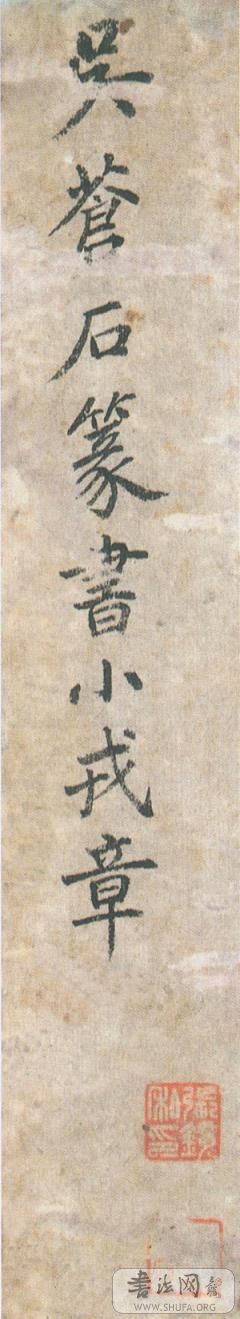 吴苍石篆書小戎章
書法网
WWW.SHUFA.ORG